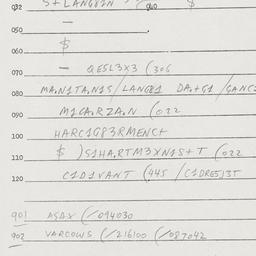 032
040 $
050 —
060 $
070 — QESL3X3 (306
080 MA.N1TA.N1S/LANGE1
090 M1CA.RZA.N (022
100 HARC1G83RMENC+
110 $ )S1HA.RTM3XN1S+T (022
120 C1D1VANT (445 /C1DRES13T
901 ASAX (/094030
902 VARCOWS (/216100 (/087042